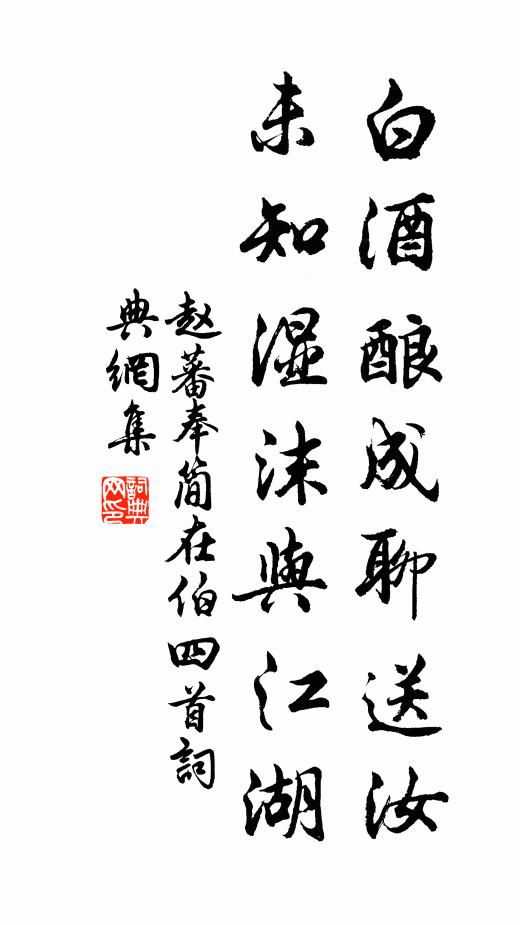 白酒酿成聊送汝
未知湿沫與江湖
赵蕃奉简在伯四首詞
典網集
詞典网印